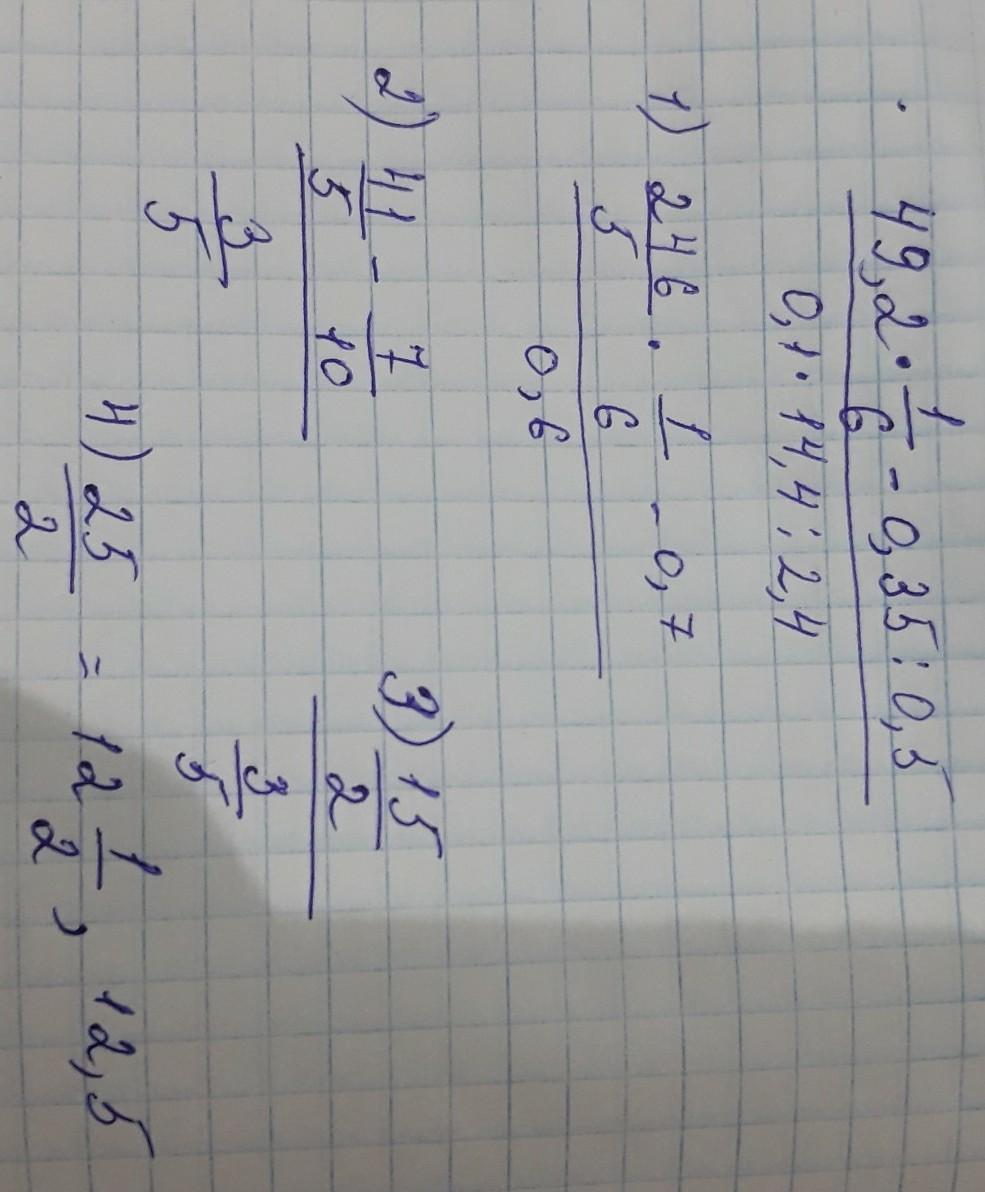 49,2 · 1/6 - 0,35 : 0,5
0,1 · 14,4 : 2,4
1) 246/5 · 1/6 - 0,7
0,6
2) 41/5 - 7/10
3/5
3) 15/2
3/5
4) 25/2 = 12 1/2, 12,5